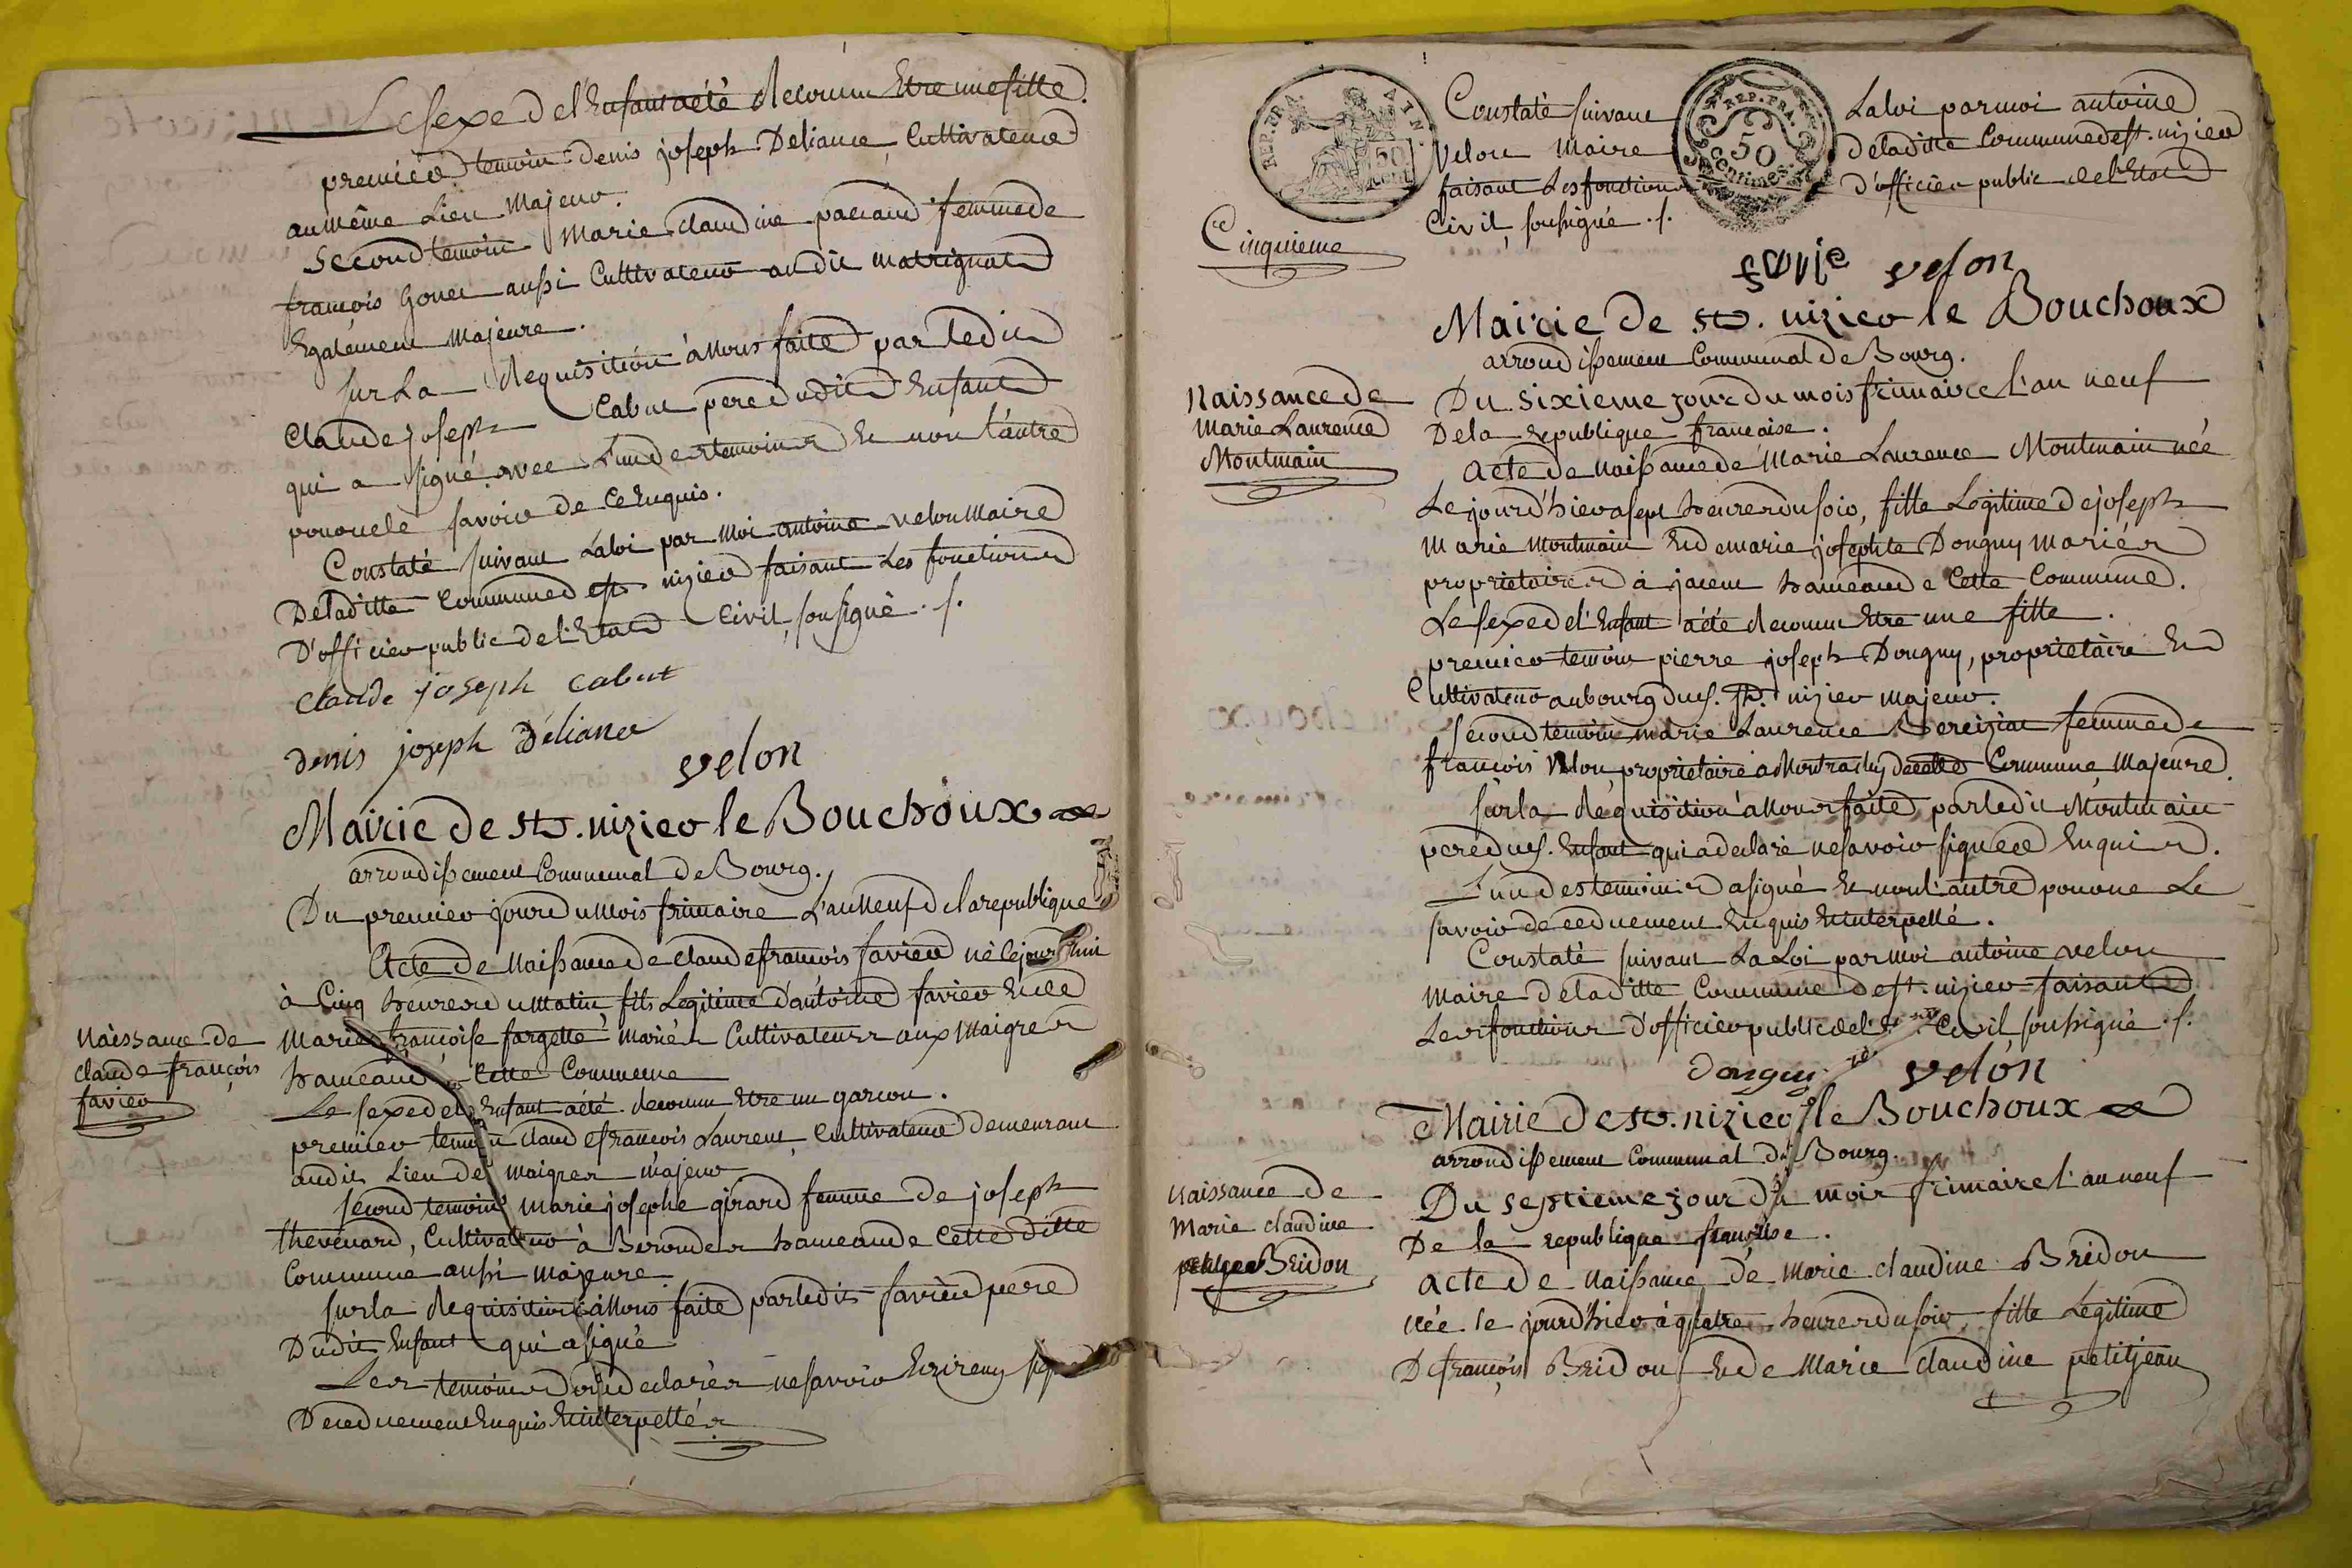 Le sexe de l'Enfant a été reconnu Etre une fille.
premier temoin denis joseph Deliance, Cultivateur
au même Lieu Majeur.
Second temoin Marie claudine pacaud femme de
françois Gouer aussi Cultivateur au dit matrignat
Egalement Majeure.
sur La requisition à Nous faite par ledit
Claude joseph Cabut pere dudit Enfant
qui a signé avec L'un des temoins Et non l'autre
pour ne le savoir de Ce Enquis.
Constaté suivant La loi par Moi antoine velon Maire
De la ditte Commune de st. nizier faisant Les fonctions
D'officier public de l'Etat Civil, soussigné ./.
claude joseph cabut
denis joseph Déliance
velon
Mairie de st. nizier le Bouchoux
arrondissement Communal de Bourg.
Du premier jour du Mois frimaire L'an Neuf de la republique
Acte de Naissance de claude françois favier né le jour d'hui
à Cinq heures du Matin, fils Legitime d'antoine favier Et de
Naissance de
claude françois
favier
Marie françoise fargette mariés Cultivateurs aux Maigres
hameau de Cette Commune
Le sexe de l'Enfant a été reconnu Etre un garcon.
premier temoin claude françois Laurent, Cultivateur Demeurant
au dit Lieu des maigres majeur
second temoin Marie josephe girard femme de joseph
thevenard, Cultivateur à hameau de Cette ditte
Commune aussi majeure.
sur la requisition à Nous faite par le dit favier pere
Du dit Enfant qui a signé
Les temoins ont declarés ne savoir Ecrire ny
De ce duement Enquis Et interpellés
Constaté suivant La loi par moi antoine
velon Maire de la ditte Commune de st. nizier
faisant Les fonctions d'officier public de l'Etat
Civil, soussigné ./.
Cinquieme
REP. FRA.
AIN
50
Cent.
REP. FRA.
50
Centimes
favie velon
Mairie de st. nizier le Bouchoux
arrondissement Communal de Bourg.
Naissance de
Marie Laurence
Montmain
Du sixieme jour du mois frimaire l'an neuf
De la republique française.
Acte de Naissance de Marie Laurence Montmain née
Le jour d'hier a sept heures du soir, fille Legitime de joseph
Marie Montmain Et de marie josephte Donguy mariés
proprietaires à jacent hameau de Cette Commune.
Le sexe de l'Enfant a été reconnu Etre une fille.
premier temoin pierre joseph Donguy, proprietaire Et
Cultivateur au bourg du s. st. nizier majeur.
second temoin marie Laurence Bereiziat femme de
françois Velon proprietaire a Montrachy de cette Commune, Majeure.
sur la requisition a Nous faite par le dit Montmain
pere du s. Enfant qui a declaré ne savoir signer Enquis.
L'un des temoins a signé Et non l'autre pour ne Le
savoir de ce duement Enquis Et interpellé.
Constaté suivant La Loi par moi antoine velon
Maire de la ditte Commune de st. nizier faisant
Les fonctions d'officier public de l'Etat Civil soussigné ./.
donguy velon
Mairie de st. nizier le Bouchoux
arrondissement Communal de Bourg.
Naissance de
Marie claudine
Bridon
Du septieme jour du mois frimaire l'an neuf
De la republique française.
acte de Naissance de Marie claudine Bridon
née le jour d'hier à quatre heures du soir, fille Legitime
De françois Bridon Et de Marie claudine petitjean